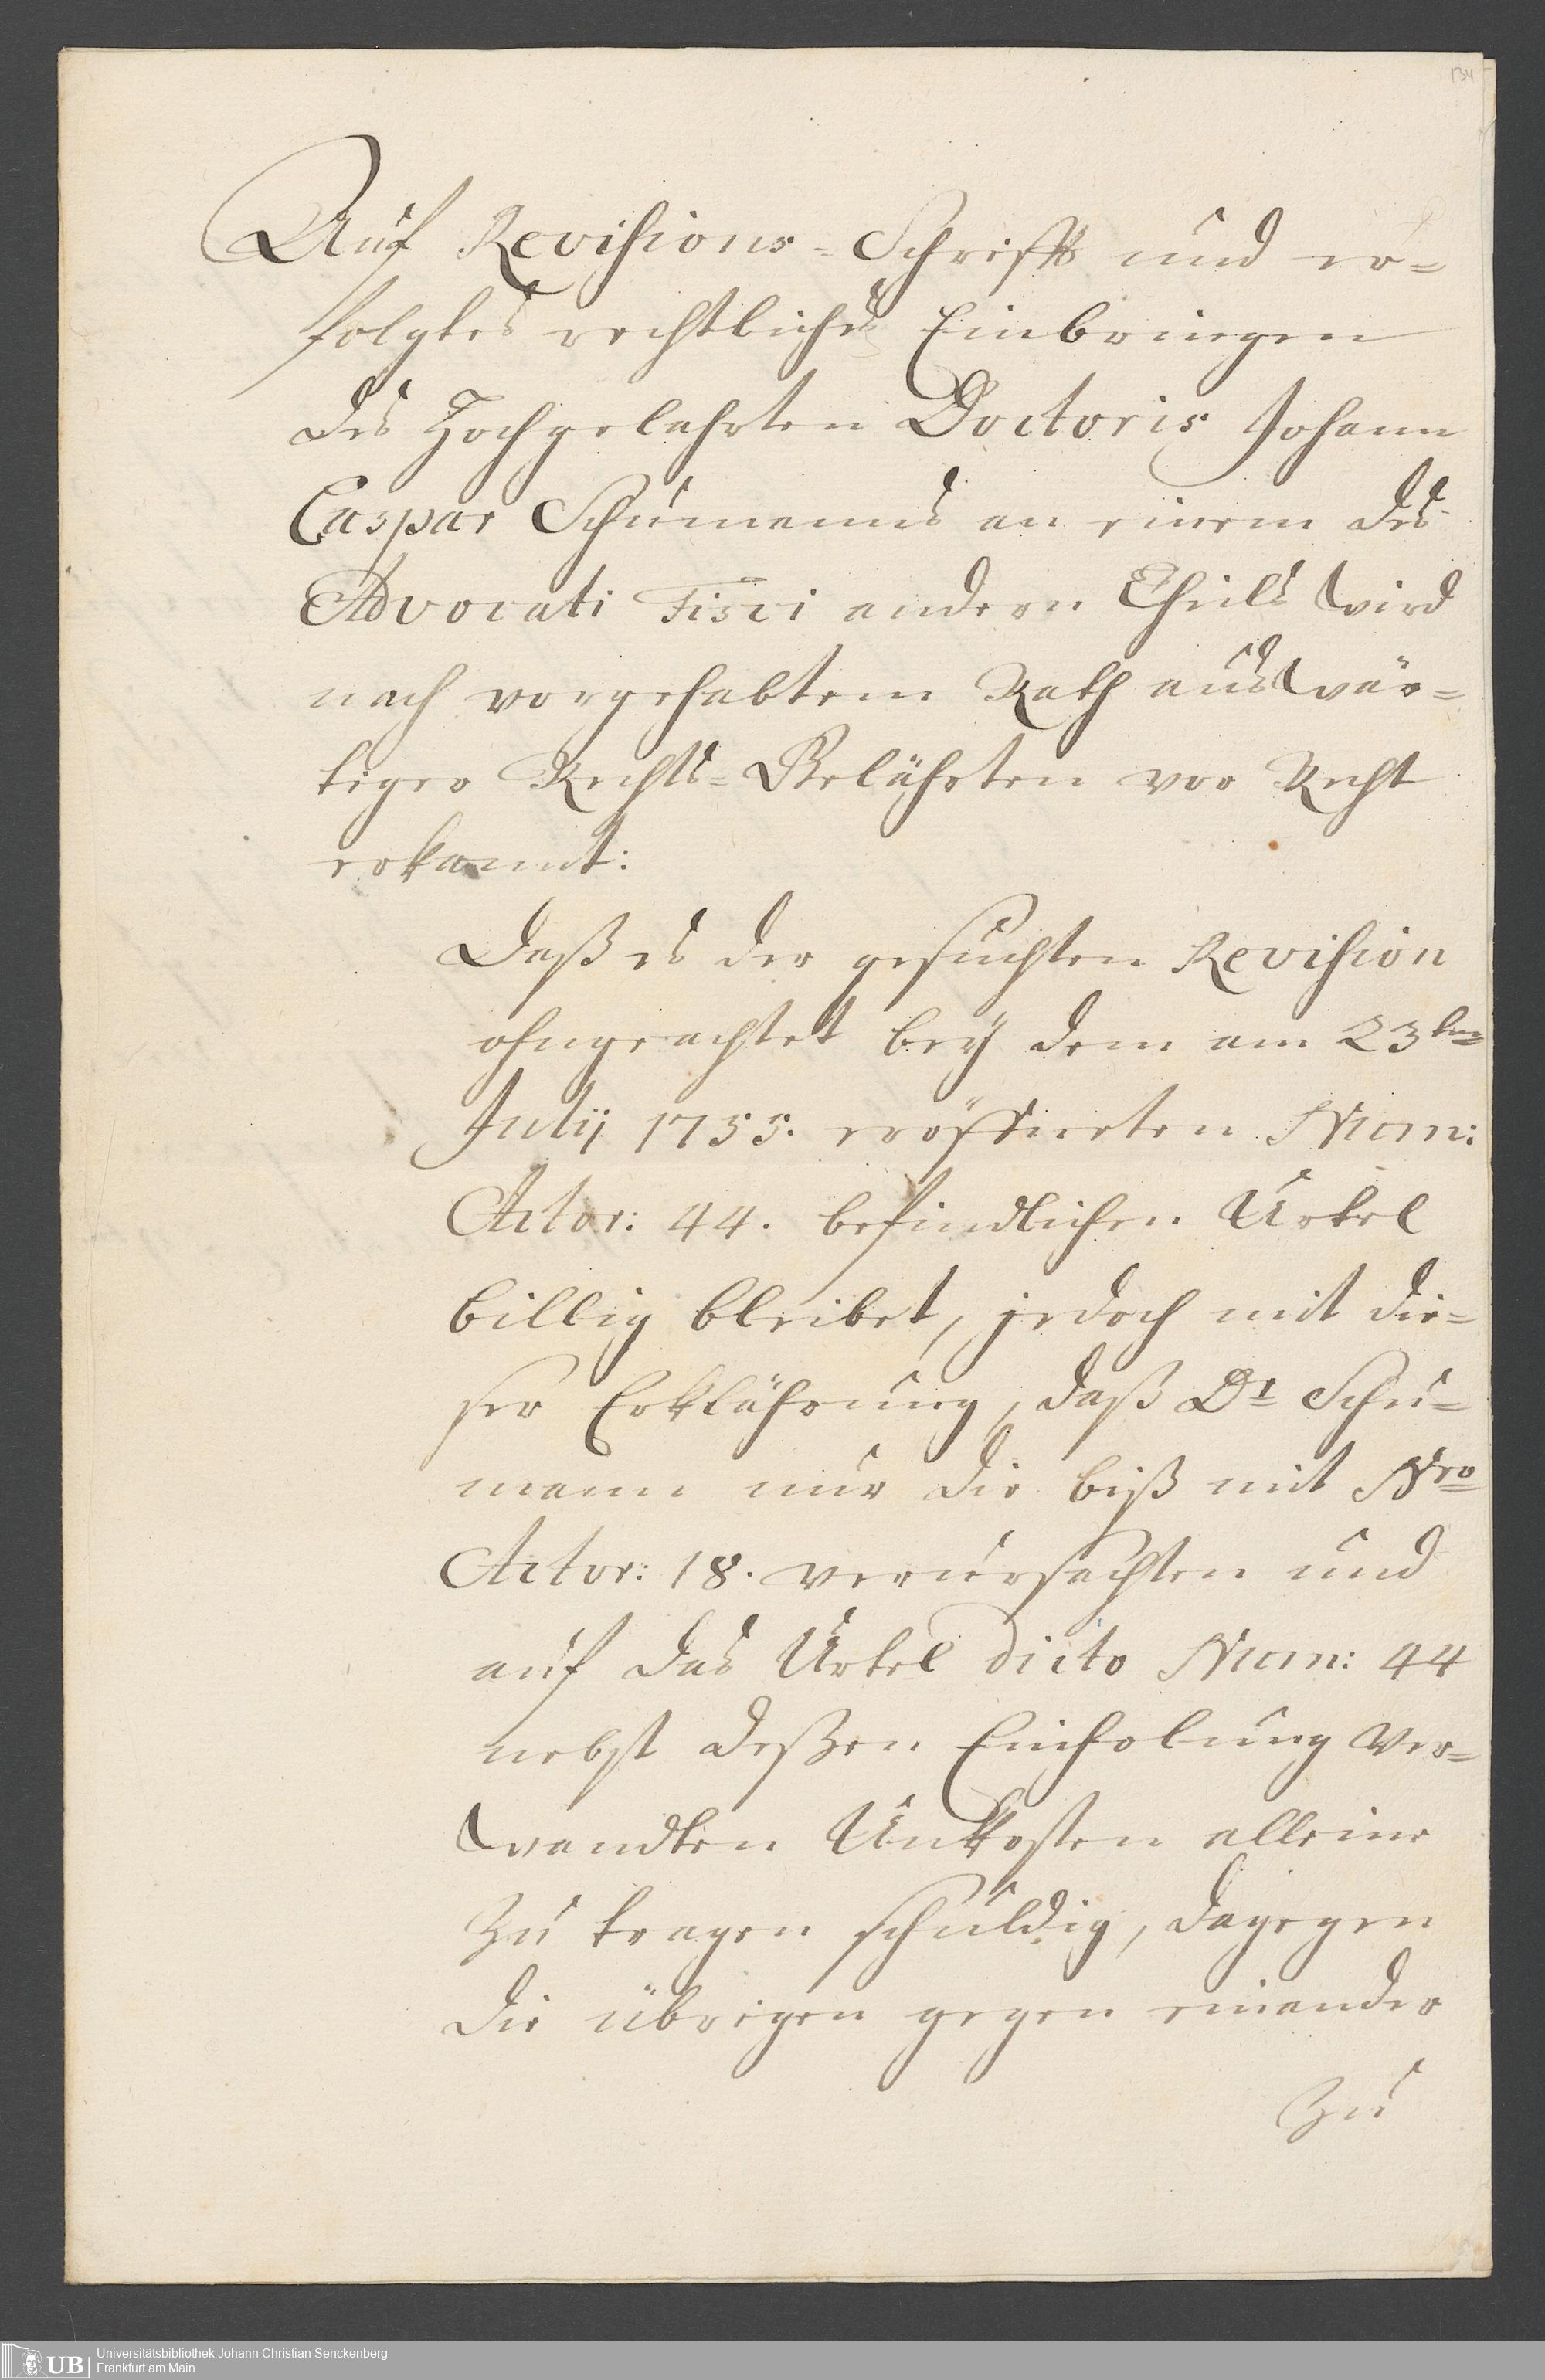 134
Auf Revisions-Schrifft und er=
folgtes rechtliches Einbringen
des Hochgelahrten Doctoris Johann
Caspar Schumanns an einem des
Advocati Fisci andern Theils wird
nach vorgehabtem Rath auswär=
tiger Rechts-Gelährten vor Recht
erkannt:
Daß es der gesuchten Revision
ohngeachtet bey dem am 23ten
Julij 1755. eröffneten Num:
Actor: 44. befindlichen Urtel
billig bleibet, jedoch mit die=
ser Erklährung, daß Dr Schu=
mann nur die biß mit Nro
Actor: 18. verursachten und
auf das Urtel dicto Num: 44
nebst deßen Einholung ver=
wandten Unkosten alleine
zu tragen schuldig, dagegen
die übrigen gegen einander
zu
UB
Universitätsbibliothek Johann Christian Senckenberg
Frankfurt am Main